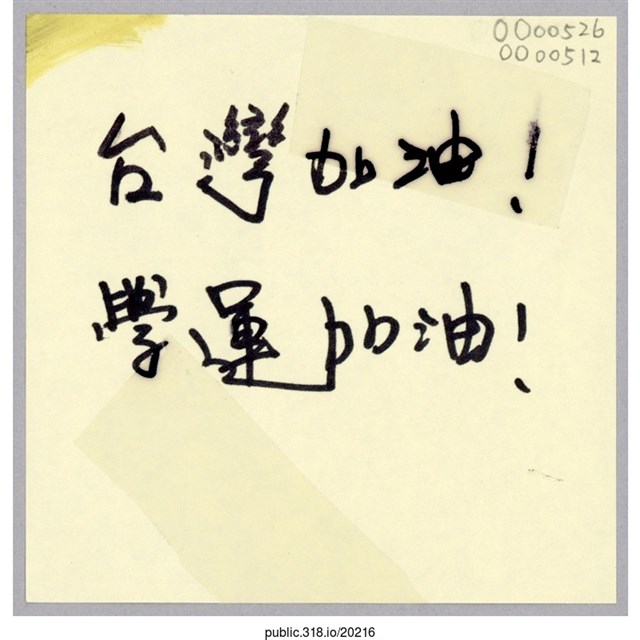 0000526
0000512
台灣加油!
學運加油!
public.318.io/20216